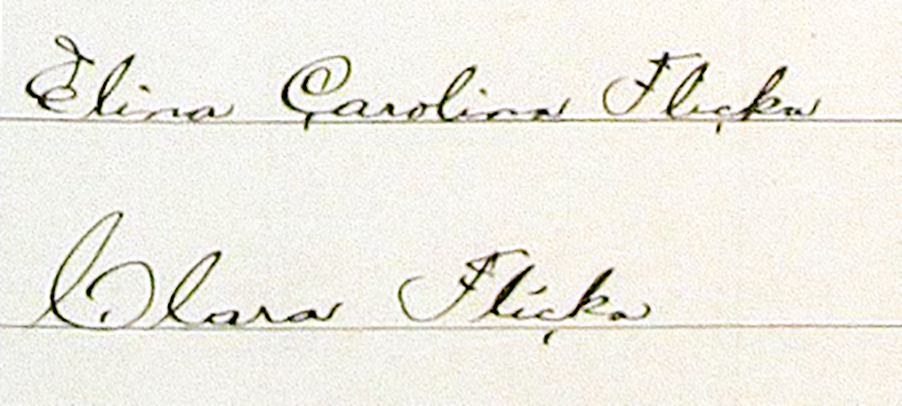 Elina Carolina Flicka
Clara Flicka